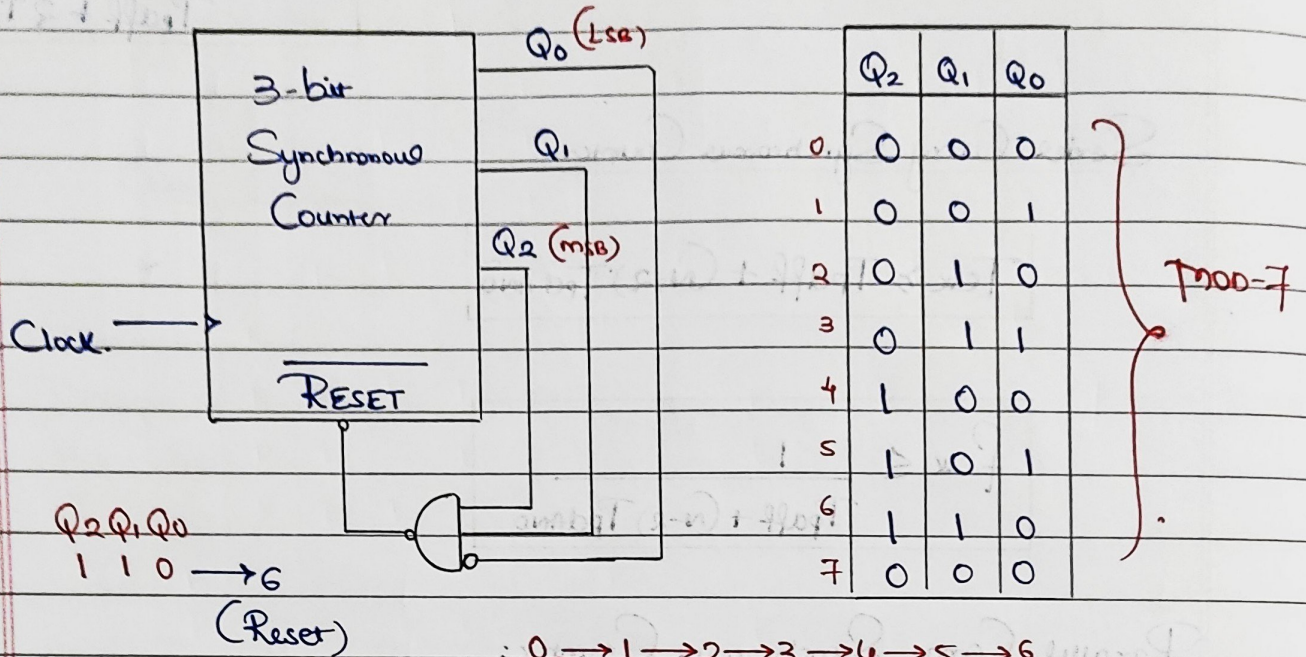 3-bit
Synchronous
Counter
Q0 (LSB)
Q1
Q2 (MSB)
Clock.
RESET
Q2 Q1 Q0
1 1 0 → 6
(Reset)
Q2 Q1 Q0
0 0 0 0
1 0 0 1
2 0 1 0
3 0 1 1
4 1 0 0
5 1 0 1
6 1 1 0
7 0 0 0
MOD-7
: 0 → 1 → 2 → 3 → 4 → 5 → 6